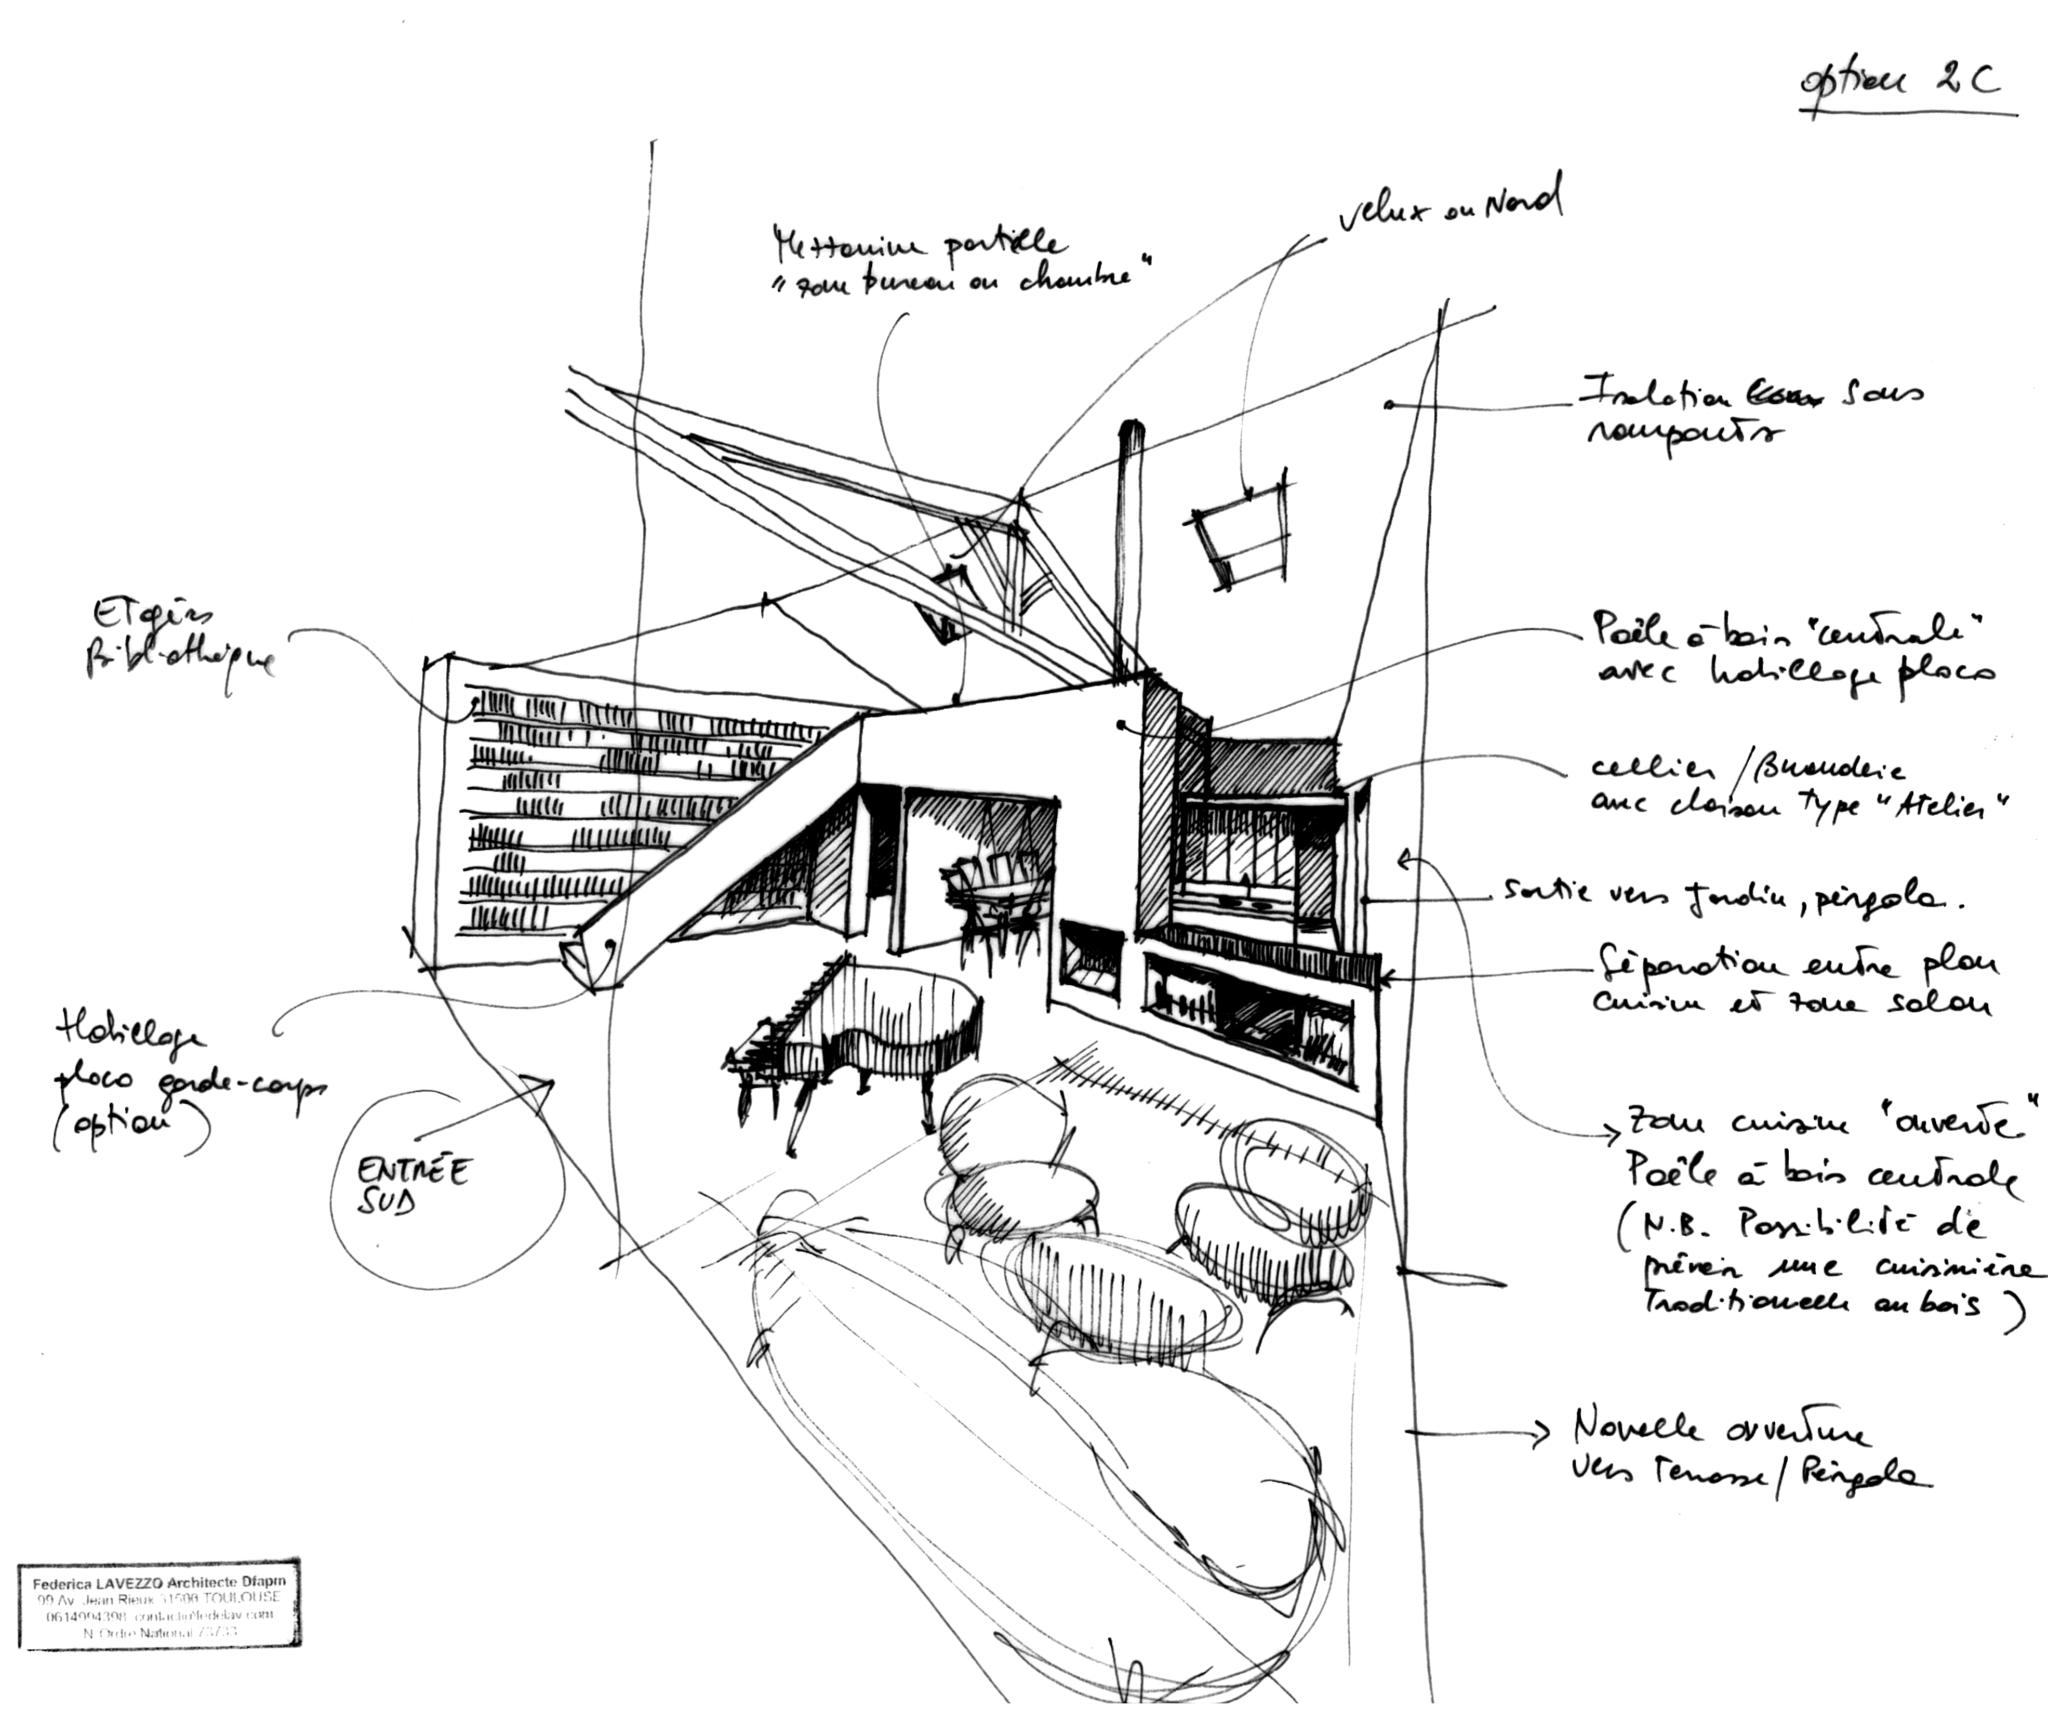 option 2C
Velux au Nord
Mezzanine partielle
"zone bureau ou chambre"
Isolation sous
rampants
Etagères
Bibliothèque
Poêle à bois "centrale"
avec habillage placo
cellier / Buanderie
avec cloison type "Atelier"
Sortie vers Jardin, pérgola.
Séparation entre plan
cuisine et zone salon
Habillage
placo garde-corps
(option)
ENTRÉE
SUD
Zone cuisine "ouverte"
Poêle à bois centrale
(N.B. Possibilité de
prévoir une cuisinière
Traditionnelle au bois)
Nouvelle ouverture
vers Terrasse / Pérgola
Federica LAVEZZO Architecte Dfapm
99 Av. Jean Rieux 31500 TOULOUSE
0614994398
N Ordre National